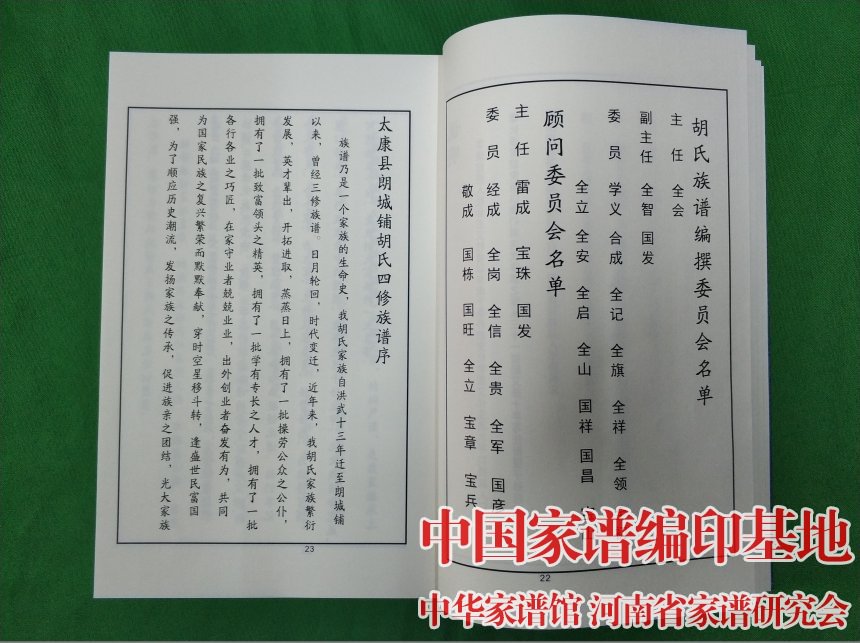 胡氏族谱编撰委员会名单
主任 全会
副主任 全智 国发
委员 学义 合成 全记 全旗 全祥 全领
全立 全安 全启 全山 国祥 国昌
顾问委员会名单
主任 雷成 宝珠 国发
委员 经成 全岗 全信 全贵 全军 国彦
敬成 国栋 国旺 全立 宝章 宝兵
22
太康县朗城铺胡氏四修族谱序
族谱乃是一个家族的生命史，我胡氏家族自洪武十三年迁至朗城铺
以来，曾经三修族谱。日月轮回，时代变迁，近年来，我胡氏家族繁衍
发展，英才辈出，开拓进取，蒸蒸日上，拥有了一批操劳公众之公仆，
拥有了一批致富领头之精英，拥有了一批学有专长之人才，拥有了一批
各行各业之巧匠，在家守业者兢兢业业，出外创业者奋发有为，共同
为国家民族之复兴繁荣而默默奉献，穿时空星移斗转，逢盛世民富国
强，为了顺应历史潮流，发扬家族之传承，促进族亲之团结，光大家族
23
中国家谱编印基地
中华家谱馆 河南省家谱研究会